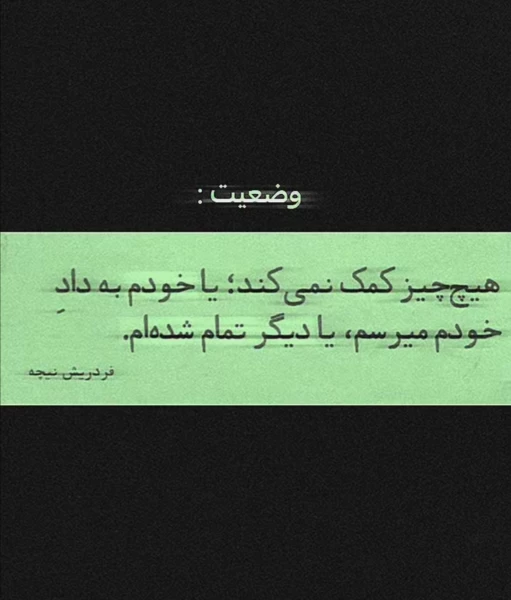 وضعیت :
هیچ‌چیز کمک نمی‌کند؛ یا خودم به دادِ
خودم میرسم، یا دیگر تمام شده‌ام.
فردریش نیچه